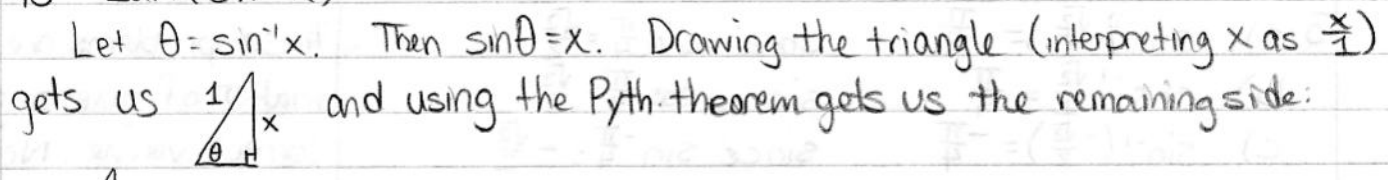 Let θ = sin⁻¹x. Then sinθ = x. Drawing the triangle (interpreting x as x/1)
gets us 1 x θ and using the Pyth. theorem gets us the remaining side: